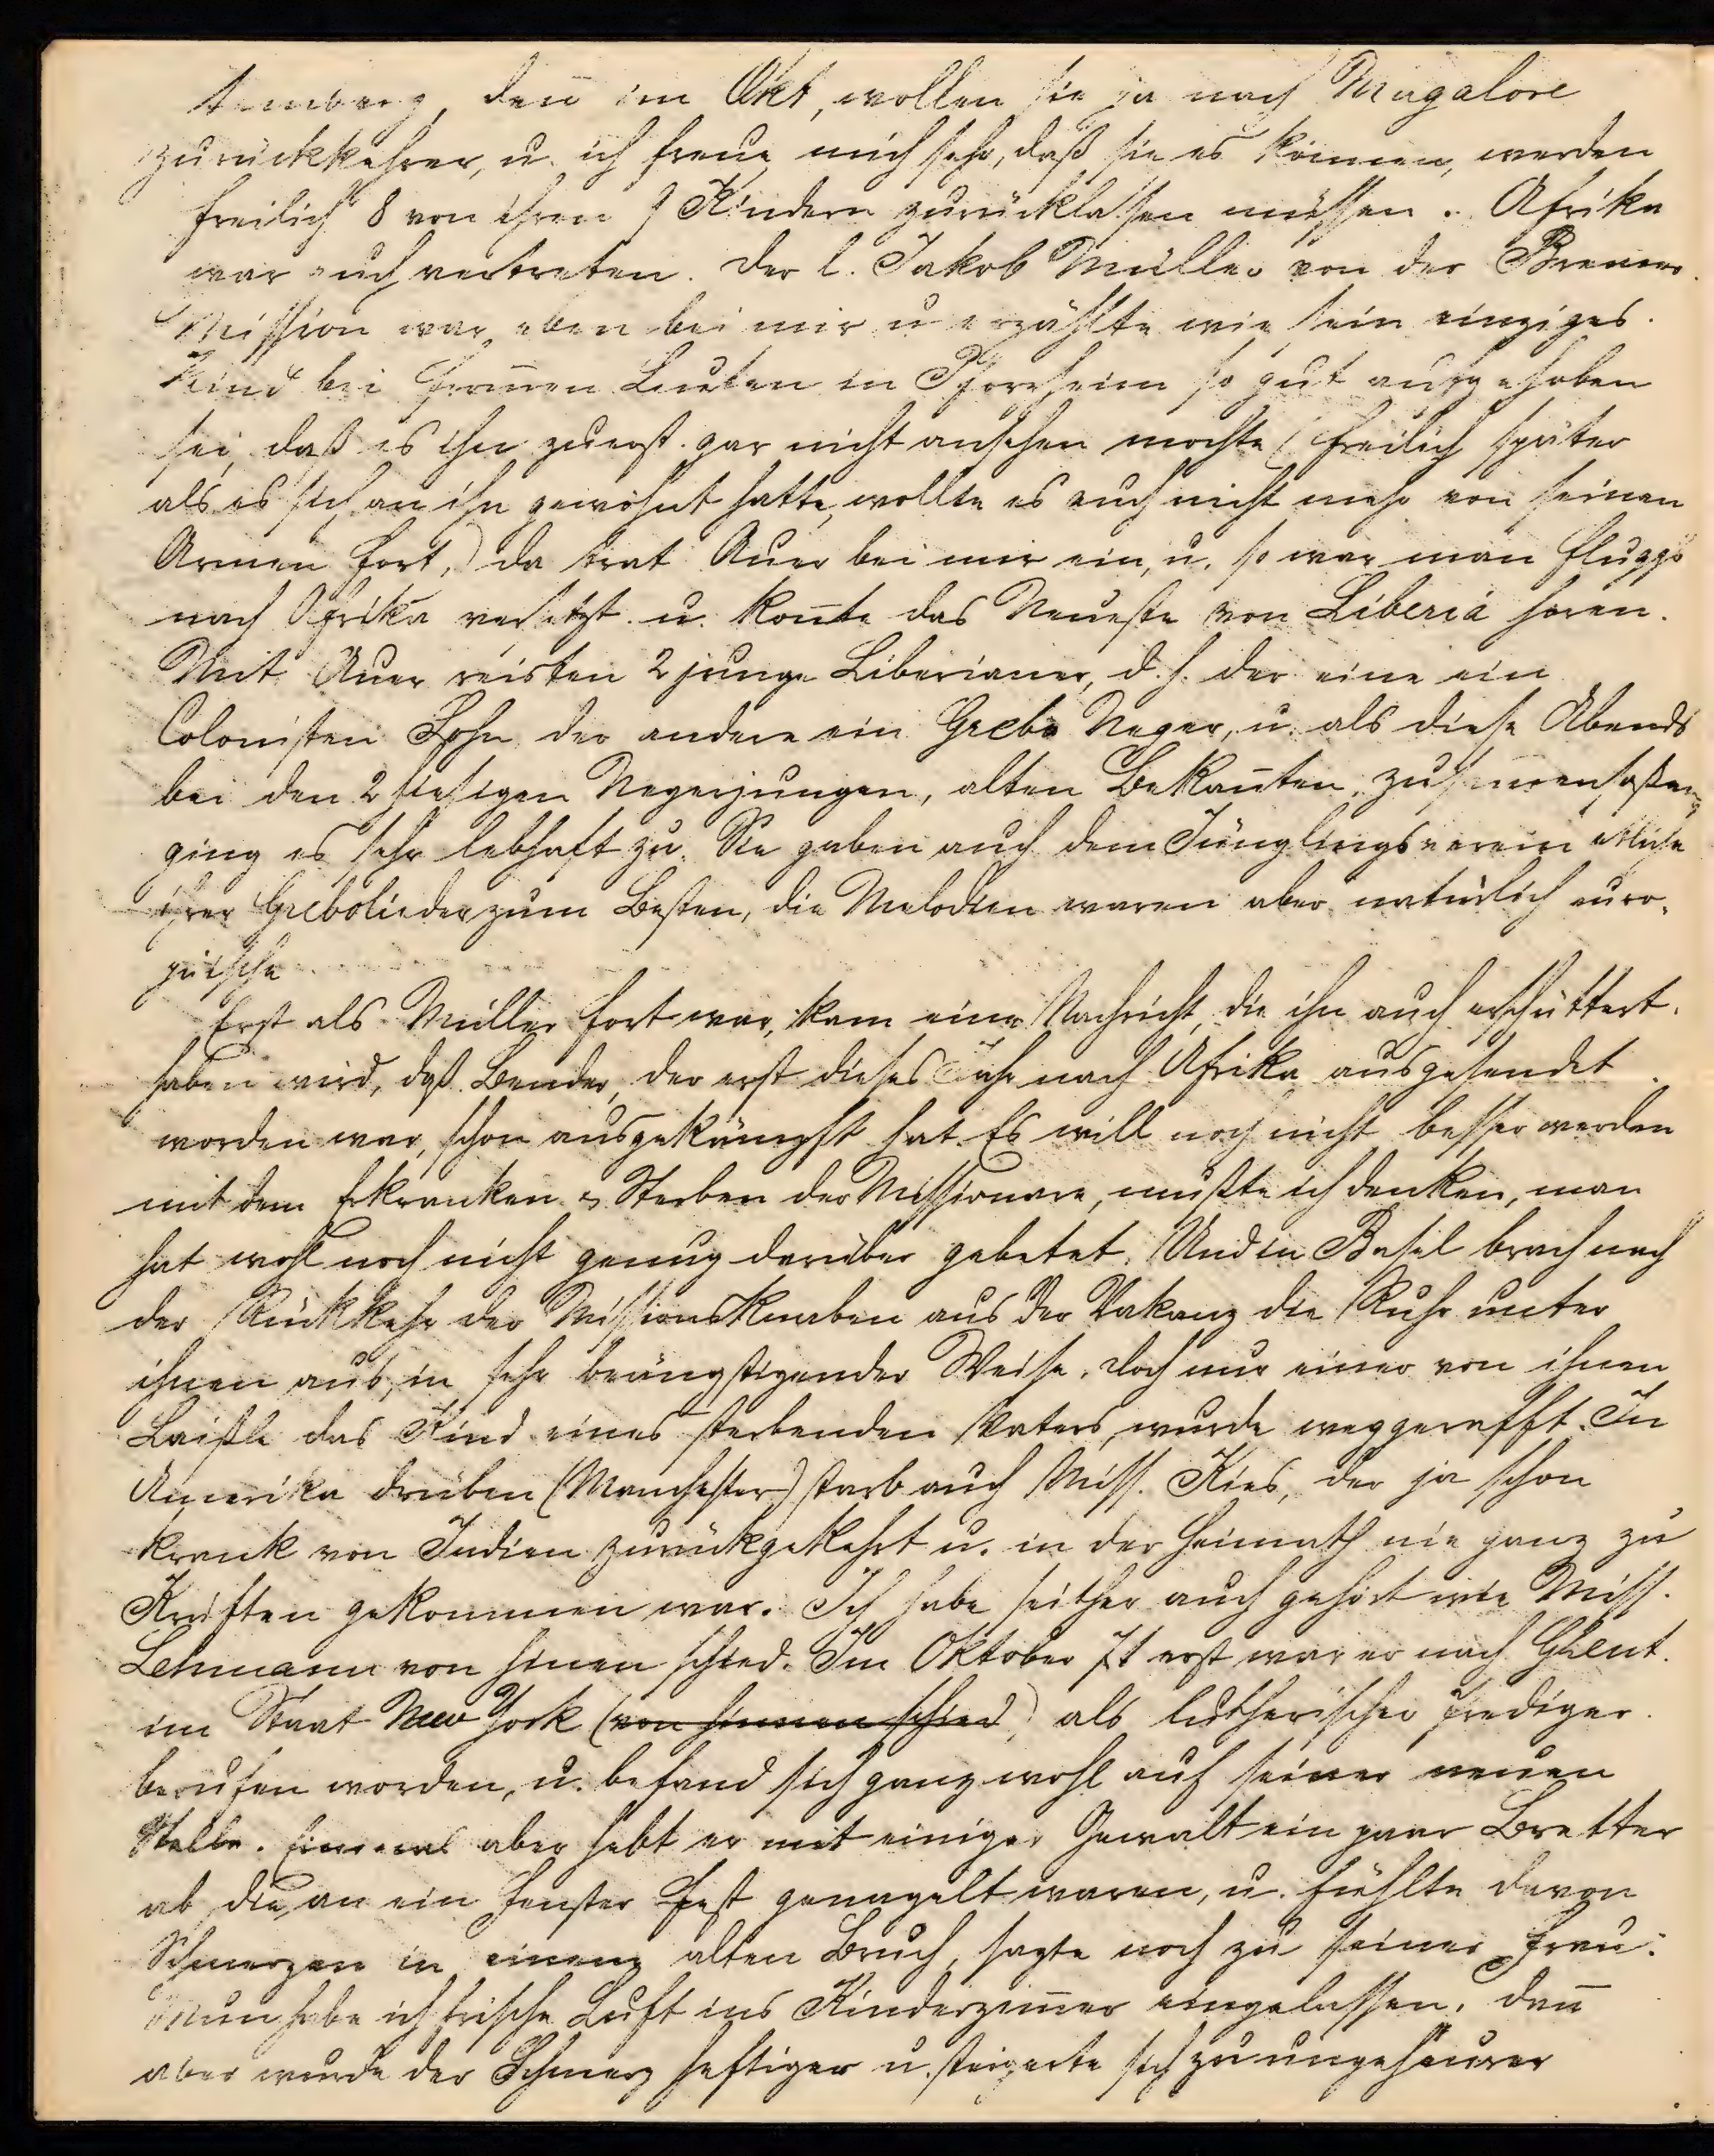 denn im Okt, wollen sie ja nach Mangalore
zurückkehren, u. ich freue mich sehr, daß sie es können, werden
freilich 8 von ihren 9 Kindern zurücklassen müssen. Afrika
war auch vertreten. Der l. Jakob Müller von der Bremer
Mission war eben bei mir u erzählte wie sein einziges
Kind bei frommen Leuten in Pforzheim so gut aufgehoben
sei, daß es ihn zuerst gar nicht ansehen mochte (freilich später
als es sich an ihn gewöhnt hatte, wollte es auch nicht mehr von seinen
Armen fort,) da trat Auer bei mir ein, u. so war man flugs
nach Afrika versetzt u. konnte das Neueste von Liberia hören.
Mit Auer reisten 2 junge Liberianer, d. h. der eine ein
Colonisten Sohn der andere ein Grebo Neger, u. als diese Abends
bei den 2 hiesigen Negerjungen, alten Bekannten, zusammensaßen,
ging es sehr lebhaft zu. Sie gaben auch dem Jünglingsverein etliche
ihrer Grebolieder zum Besten, die Melodien waren aber natürlich euro-
päische
Erst als Müller fort war, kam eine Nachricht, die ihn auch erschüttert
haben wird, daß Bender, der erst dieses Jahr nach Afrika ausgesendet
worden war, schon ausgekämpft hat. Es will noch nicht besser werden
mit dem Erkranken & Sterben der Missionare, mußte ich denken, man
hat wohl noch nicht genug darüber gebetet. Und in Basel brach nach
der Rückkehr der Missionsknaben aus der Vakanz die Ruhr unter
ihnen aus, in sehr beängstigender Weise. Doch nur einer von ihnen
Laißle das Kind eines sterbenden Vaters, wurde weggerafft. In
Amerika drüben (Manchester) starb auch Miss. Kies, der ja schon
krank von Indien zurückgekehrt u. in der Heimath nie ganz zu
Kräften gekommen war. Ich habe seither auch gehört wie Miss.
Lehmann von hinen schied. Im Oktober 71 erst war er nach Ghent
im Staat New York (von hinnen schied) als lutherischer Prediger
berufen worden, u. befand sich ganz wohl auf seiner neuen
Stelle. Einmal aber hebt er mit einiger Gewalt ein paar Bretter
ab, die an ein Fenster fest genagelt waren, u. fühlte davon
Schmerzen in einem alten Bruch, sagte noch zu seiner Frau:
Nun habe ich frische Luft ins Kinderzimmer eingelassen. Dann
aber wurde der Schmerz heftiger u. steigerte sich zu ungeheurer